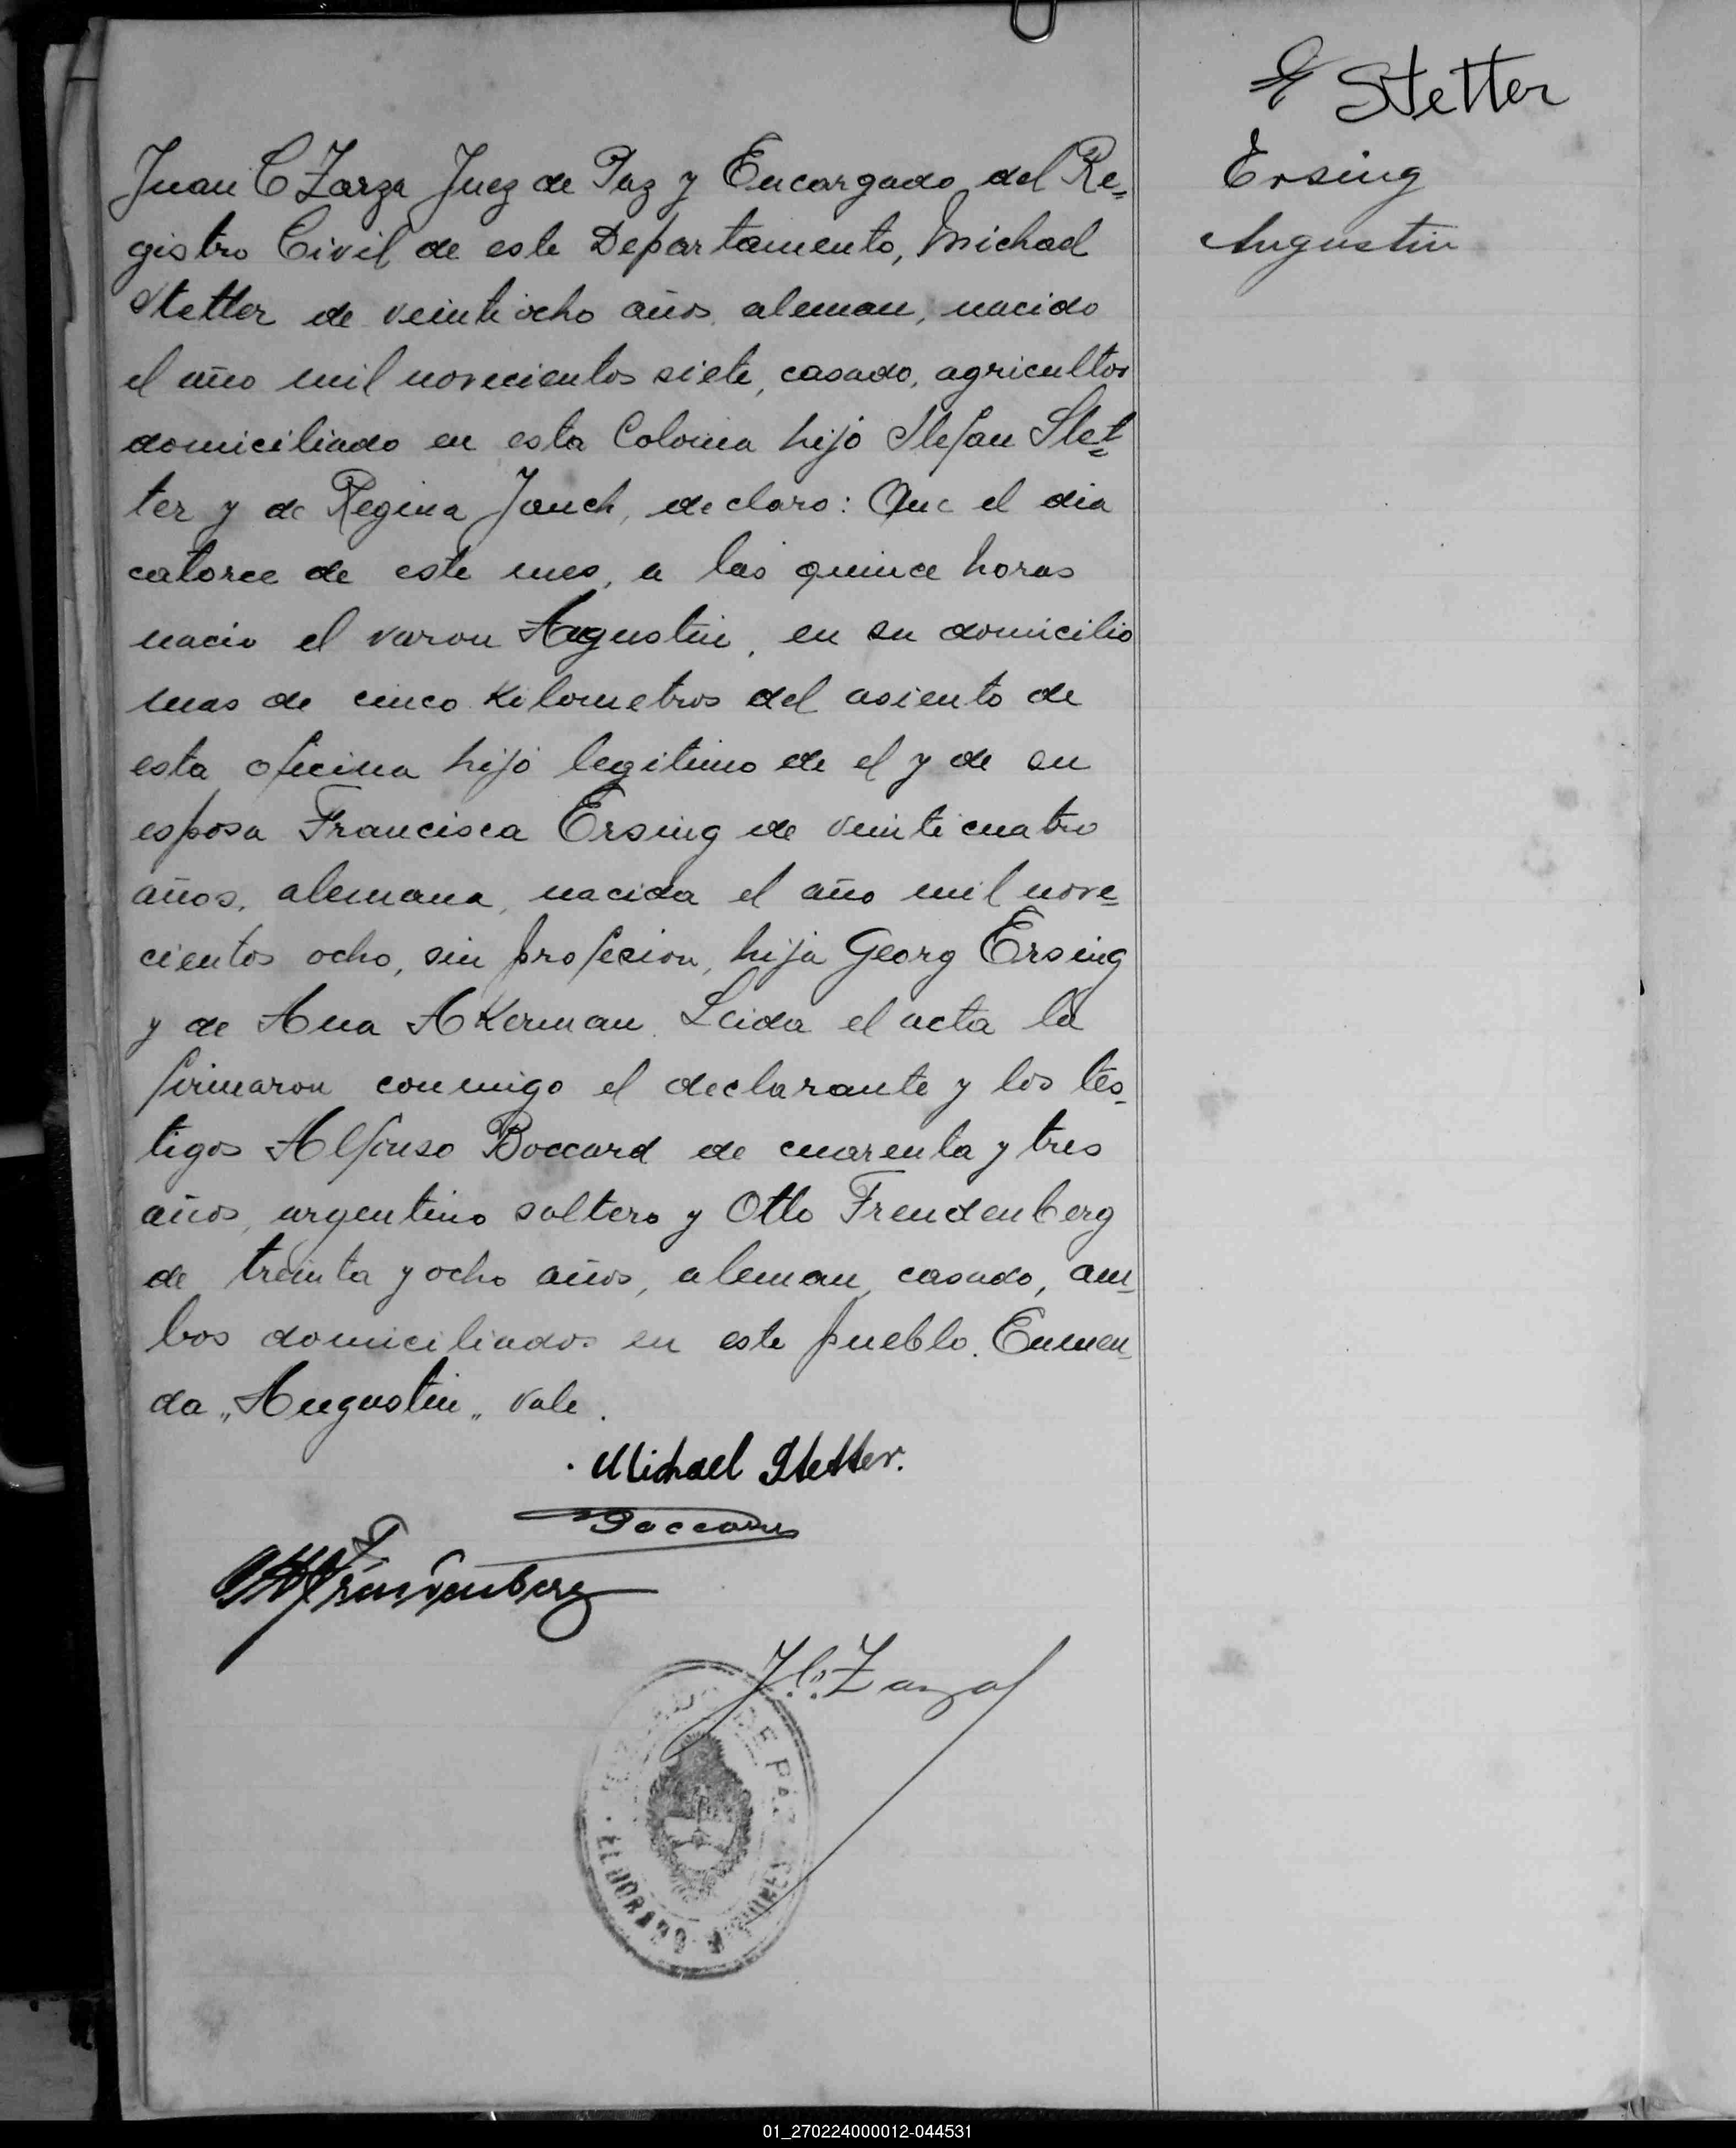 Stetter
Ersing
Augustin
Juan C Zarza Juez de Paz y Encargado del Re=
gistro Civil de este Departamento, Michael
Stetter de veintiocho años, aleman, nacido
el año mil novecientos siete, casado, agricultor
domiciliado en esta Colonia hijo Stefan Stet=
ter y de Regina Jauch, declaro: Que el dia
catorce de este mes, a las quince horas
nacio el varon Augustin, en su domicilio
mas de cinco Kilometros del asiento de
esta oficina hijo legitimo de el y de su
esposa Francisca Ersing de veinticuatro
años, alemana, nacida el año mil nove=
cientos ocho, sin profesion, hija Georg Ersing
y de Ana AKerman. Leida el acta la
firmaron conmigo el declarante y los tes-
tigos Alfonso Boccard de cuarenta y tres
años, argentino soltero y Otto Freudenberg
de treinta y ocho años, aleman, casado, am-
bos domiciliados en este pueblo. Enmen-
da „Augustin„ Vale.
Michael Stetter.
Boccard
Otto Freudenberg
J. C. Zarza
JUZGADO DE PAZ
ELDORADO MISIONES
01_270224000012-044531